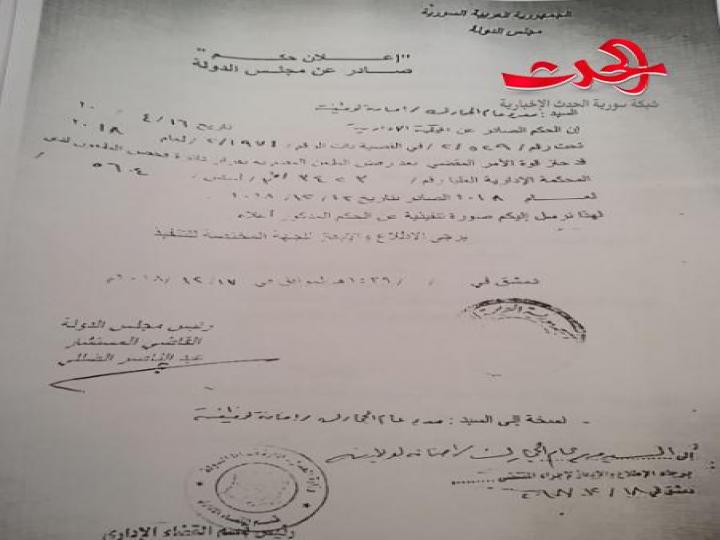 الجمهورية العربية السورية
مجلس الدولة
"إعلان حكم"
صادر عن مجلس الدولة
الحدث
شبكة سورية الحدث الإخبارية
السيد: مدير عام الجمارك / إضافة لوظيفته
إن الحكم الصادر عن المحكمة الإدارية بتاريخ ٤/١٦/ ٢٠
تحت رقم /٢/٥٢٩ في القضية ذات الرقم /٢/١٩٧١ لعام ٢٠١٨
قد حاز قوة الأمر المقضي بعد رفض الطعن المقدم به بقرار دائرة فحص الطعون لدى
المحكمة الإدارية العليا رقم / ٣٤٢٣ / أساس / ٥٦٠٤ /
لعـــام ٢٠١٨ الصادر بتاريخ ١٢/١٢/٢٠١٨
لهذا نرسل إليكم صورة تنفيذية عن الحكم المذكور أعلاه
يرجى الاطلاع و للجهة المختصة للتنفيذ
دمشق في / /١٤٣٩هـ الموافق في ١٢/١٧/٢٠١٨م
رئيس مجلس الدولة
القاضي المستشار
عبد الناصر الضللي
- نسخة إلى السيد: مدير عام الجمارك / إضافة لوظيفته
إلى السيد مدير عام الجمارك / إضافة
يرجى الاطلاع و لإجراء المقتضى
دمشق في ١٨/
رئيس قسم القضاء الإداري